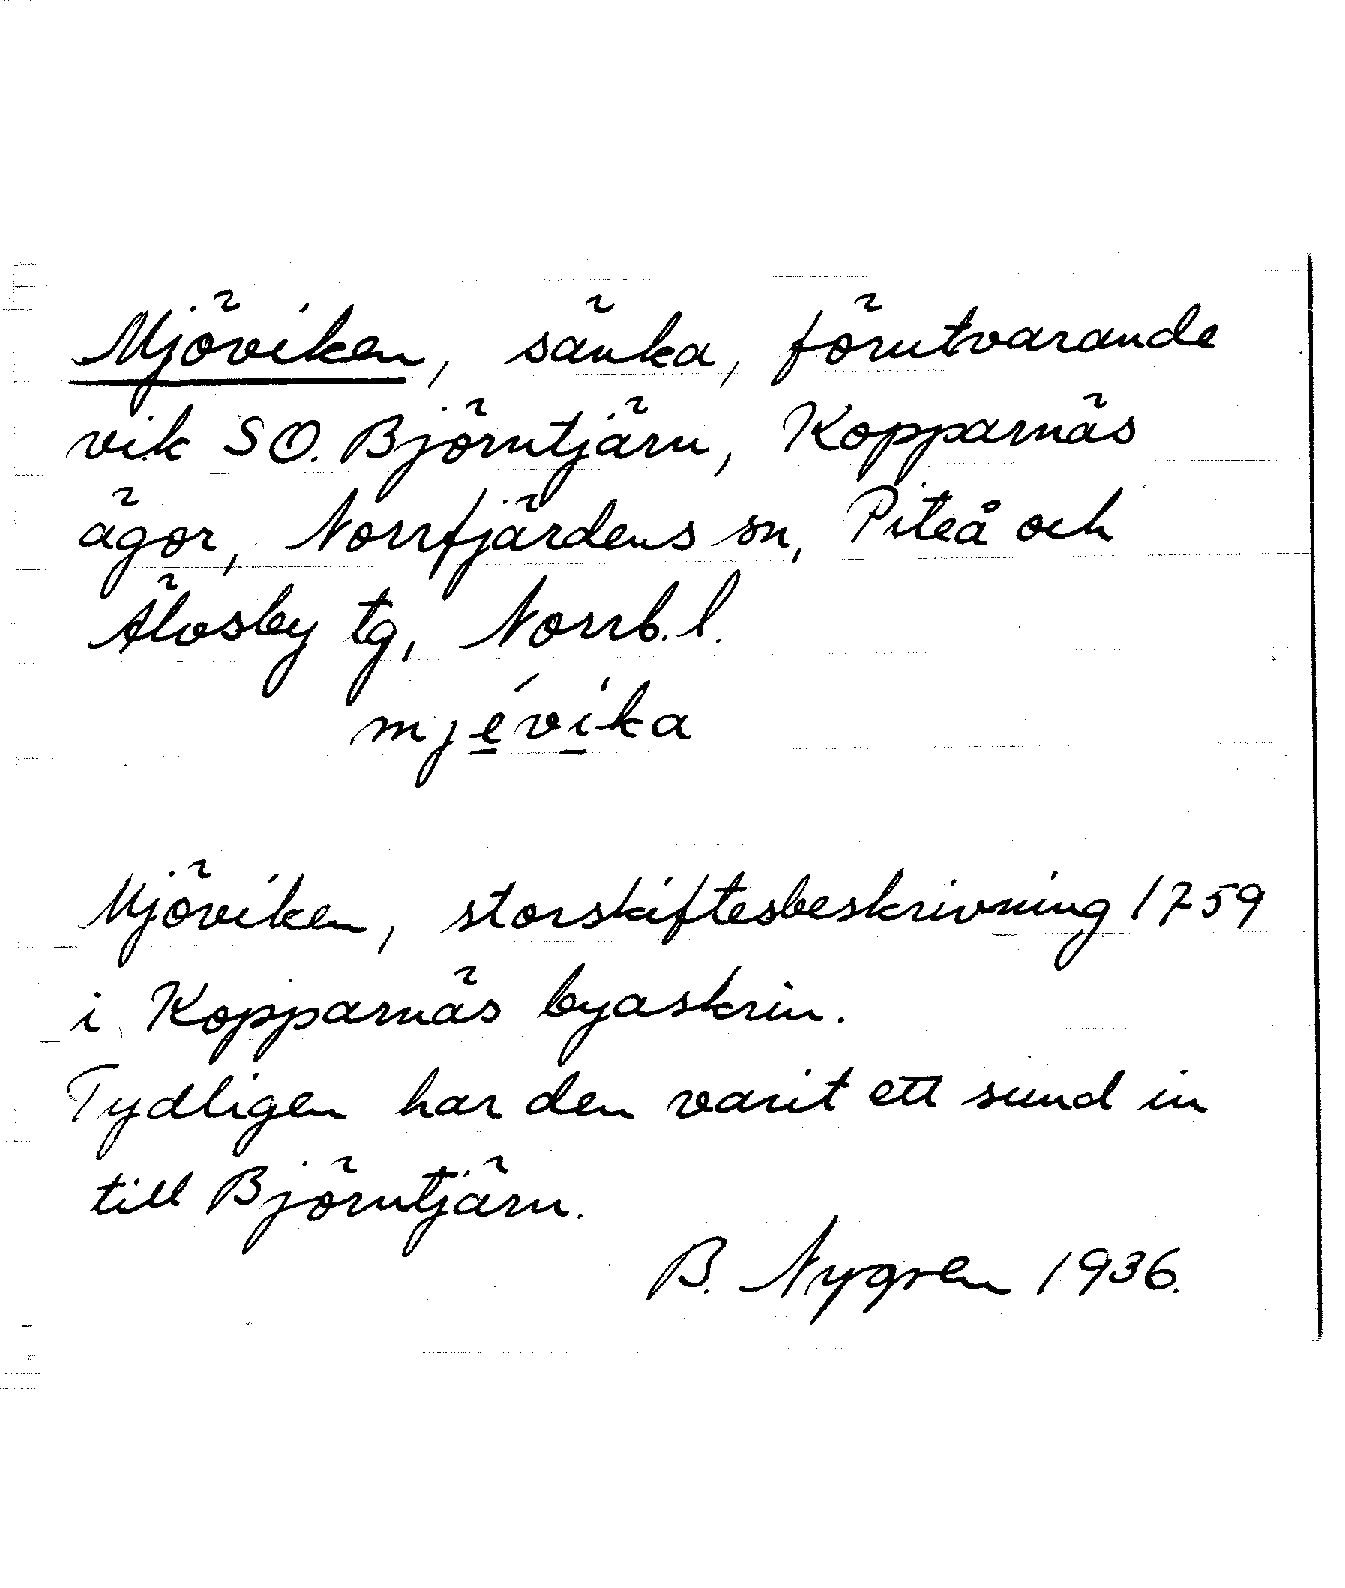 Mjöviken, sänka, förutvarande
vik SO. Björntjärn, Kopparnäs
ägor, Norrfjärdens sn, Piteå och
Älvsby tg, Norrb. l.
mjévíka
Mjöviken, storskiftesbeskrivning 1759
i Kopparnäs byaskrin.
Tydligen har den varit ett sund in
till Björntjärn.
B. Nygren 1936.